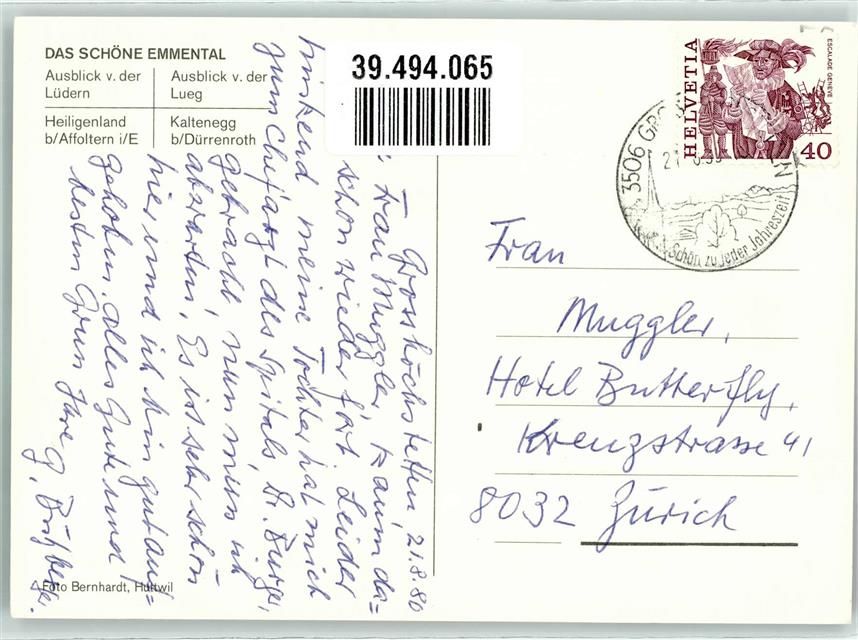 DAS SCHÖNE EMMENTAL
Ausblick v. der Lüdern
Ausblick v. der Lueg
Heiligenland b/Affoltern i/E
Kaltenegg b/Dürrenroth
39.494.065
HELVETIA
ESCALADE GENÈVE
40
3506
Schön zu jeder Jahreszeit
Grosshöchstetten, 21.8.80
Frau Muggler, kaum da=
schon wieder fort. Leider
hinkend meine Tochter hat mich
zum Chefarzt des Spitals, Dr.
gebracht nun muss ich
abwarten, Es ist sehr schön
hier und ich bin gut auf=
gehoben. Alles Gute und
besten Gruss Ihre G.
Frau
Muggler,
Hotel Butterfly,
Kreuzstrasse 41
8032 Zürich
Foto Bernhardt, Huttwil